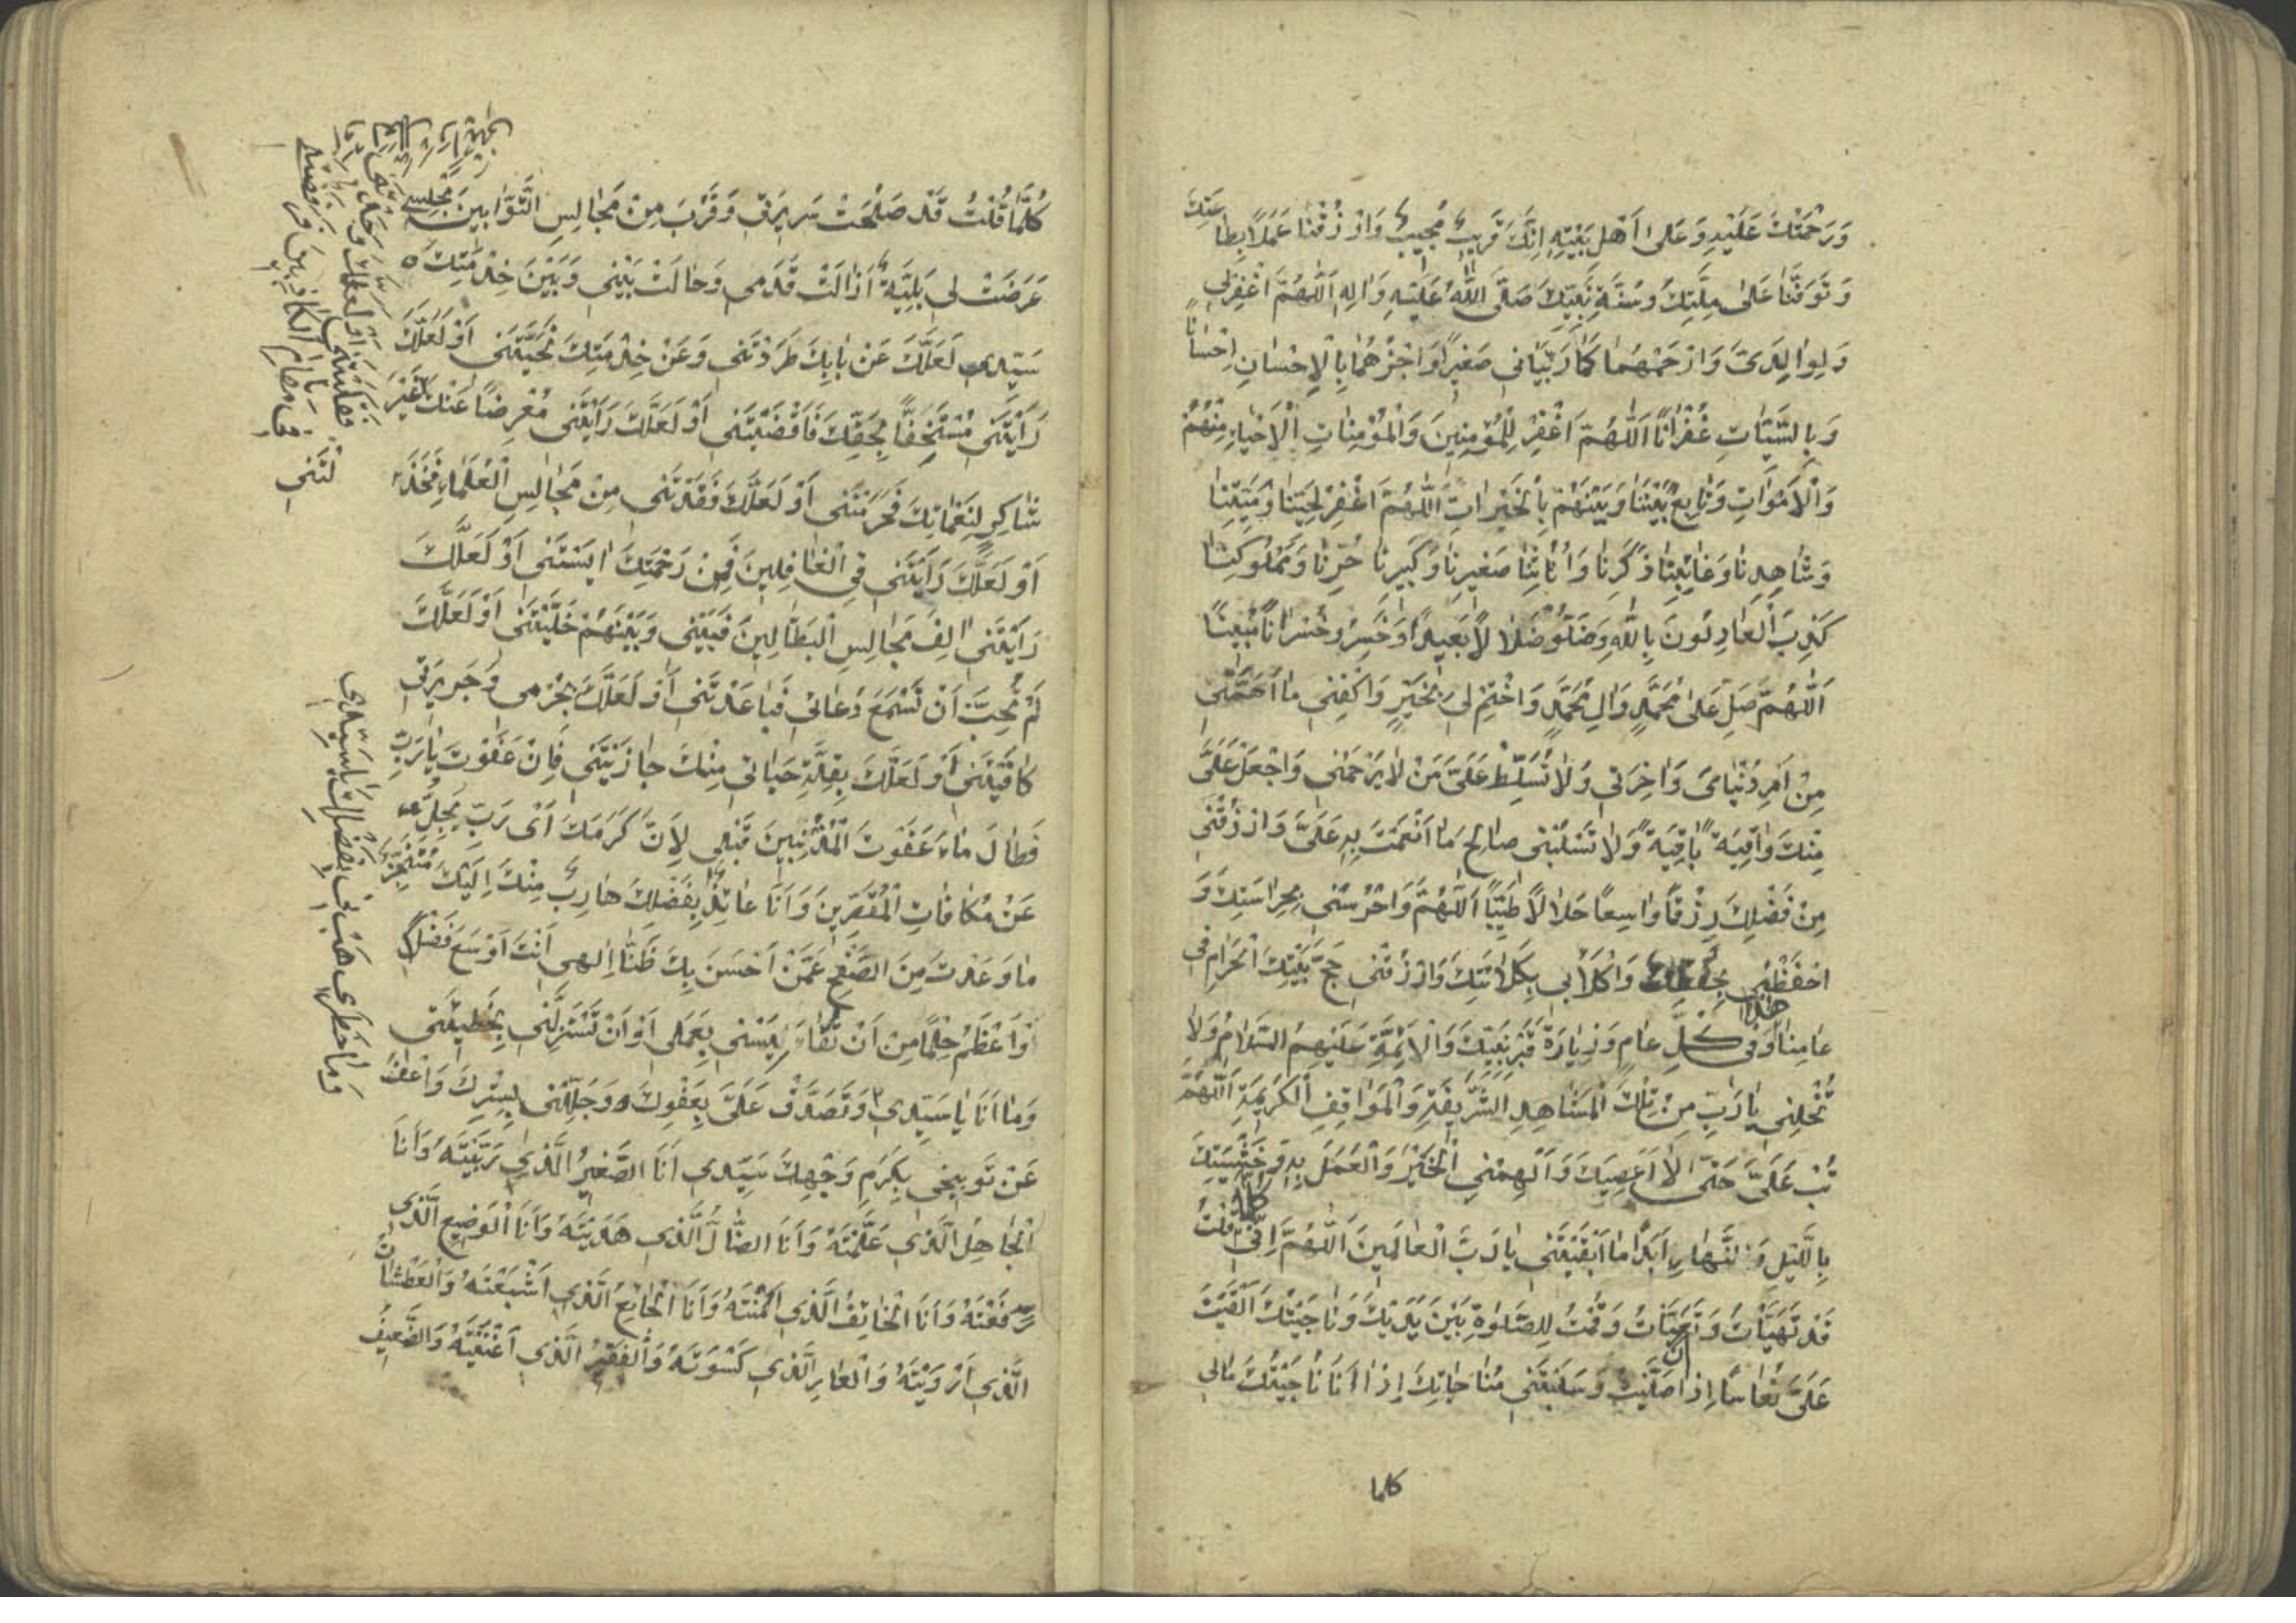 وَرَحْمَتُكَ عَلَيْهِ وَعَلىٰ اَهْلِ بَيْتِهِ اِنَّكَ قَرِيبٌ مُجِيبٌ وَارْزُقْنَا عَمَلًا بِطَاعَتِكَ
وَتَوَفَّنَا عَلىٰ مِلَّتِكَ وَسُنَّةِ نَبِيِّكَ صَلَّى اللّٰهُ عَلَيْهِ وَاٰلِهِ اَللّٰهُمَّ اغْفِرْلِي
وَلِوَالِدَيَّ وَارْحَمْهُمَا كَمَا رَبَّيَانِي صَغِيرًا وَاجْزِهُمَا بِالْاِحْسَانِ اِحْسَانًا
وَبِالسَّيِّئَاتِ غُفْرَانًا اَللّٰهُمَّ اغْفِرْ لِلْمُؤْمِنِينَ وَالْمُؤْمِنَاتِ اَلْاَحْيَاءِ مِنْهُمْ
وَالْاَمْوَاتِ وَتَابِعْ بَيْنَنَا وَبَيْنَهُمْ بِالْخَيْرَاتِ اَللّٰهُمَّ اغْفِرْ لِحَيِّنَا وَمَيِّتِنَا
وَشَاهِدِنَا وَغَائِبِنَا ذَكَرِنَا وَاُنْثَانَا صَغِيرِنَا وَكَبِيرِنَا حُرِّنَا وَمَمْلُوكِنَا
كَذِبَ الْعَادِلُونَ بِاللّٰهِ وَضَلُّوا ضَلَالًا بَعِيدًا وَخَسِرُوا خُسْرَانًا مُبِينًا
اَللّٰهُمَّ صَلِّ عَلىٰ مُحَمَّدٍ وَاٰلِ مُحَمَّدٍ وَاخْتِمْ لِي بِخَيْرٍ وَاكْفِنِي مَا اَهَمَّنِي
مِنْ اَمْرِ دُنْيَايَ وَاٰخِرَتِي وَلَا تُسَلِّطْ عَلَيَّ مَنْ لَا يَرْحَمُنِي وَاجْعَلْ عَلَيَّ
مِنْكَ وَاقِيَةً بَاقِيَةً وَلَا تَسْلُبْنِي صَالِحَ مَا اَنْعَمْتَ بِهِ عَلَيَّ وَارْزُقْنِي
مِنْ فَضْلِكَ رِزْقًا وَاسِعًا حَلَالًا طَيِّبًا اَللّٰهُمَّ وَاحْرُسْنِي بِحِرَاسَتِكَ وَ
احْفَظْنِي بِحِفْظِكَ وَاكْلَأْنِي بِكِلَائَتِكَ وَارْزُقْنِي حَجَّ بَيْتِكَ الْحَرَامِ فِي
عَامِنَا هٰذَا وَفِي كُلِّ عَامٍ وَزِيَارَةَ قَبْرِ نَبِيِّكَ وَالْاَئِمَّةِ عَلَيْهِمُ السَّلَامُ وَلَا
تُخْلِنِي يَا رَبِّ مِنْ تِلْكَ الْمَشَاهِدِ الشَّرِيفَةِ وَالْمَوَاقِفِ الْكَرِيمَةِ اَللّٰهُمَّ
تُبْ عَلَيَّ حَتّٰى لَا اَعْصِيَكَ وَاَلْهِمْنِي الْخَيْرَ وَالْعَمَلَ بِهِ وَخَشْيَتَكَ
بِاللَّيْلِ وَالنَّهَارِ اَبَدًا مَا اَبْقَيْتَنِي يَا رَبَّ الْعَالَمِينَ اَللّٰهُمَّ اِنِّي كُلَّمَا قُلْتُ
قَدْ تَهَيَّأْتُ وَتَعَبَّأْتُ وَقُمْتُ لِلصَّلٰوةِ بَيْنَ يَدَيْكَ وَنَاجَيْتُكَ اَلْقَيْتَ
عَلَيَّ نُعَاسًا اِذَا اَنَا صَلَّيْتُ وَسَلَبْتَنِي مُنَاجَاتَكَ اِذَا اَنَا نَاجَيْتُكَ مَالِي
كلما
كُلَّمَا قُلْتُ قَدْ صَلُحَتْ سَرِيرَتِي وَقَرُبَ مِنْ مَجَالِسِ التَّوَّابِينَ مَجْلِسِي
عَرَضَتْ لِي بَلِيَّةٌ اَزَالَتْ قَدَمِي وَحَالَتْ بَيْنِي وَبَيْنَ خِدْمَتِكَ
سَيِّدِي لَعَلَّكَ عَنْ بَابِكَ طَرَدْتَنِي وَعَنْ خِدْمَتِكَ نَحَّيْتَنِي اَوْ لَعَلَّكَ
رَاَيْتَنِي مُسْتَخِفًّا بِحَقِّكَ فَاَقْصَيْتَنِي اَوْ لَعَلَّكَ رَاَيْتَنِي مُعْرِضًا عَنْكَ غَيْرَ
شَاكِرٍ لِنَعْمَائِكَ فَحَرَمْتَنِي اَوْ لَعَلَّكَ فَقَدْتَنِي مِنْ مَجَالِسِ الْعُلَمَاءِ فَخَذَ
لْتَنِي
اَوْ لَعَلَّكَ رَاَيْتَنِي فِي الْغَافِلِينَ فَمِنْ رَحْمَتِكَ اٰيَسْتَنِي اَوْ لَعَلَّكَ
رَاَيْتَنِي اٰلِفَ مَجَالِسِ الْبَطَّالِينَ فَبَيْنِي وَبَيْنَهُمْ خَلَّيْتَنِي اَوْ لَعَلَّكَ
لَمْ تُحِبَّ اَنْ تَسْمَعَ دُعَائِي فَبَاعَدْتَنِي اَوْ لَعَلَّكَ بِجُرْمِي وَجَرِيرَتِي
كَافَيْتَنِي اَوْ لَعَلَّكَ بِقِلَّةِ حَيَائِي مِنْكَ جَازَيْتَنِي فَاِنْ عَفَوْتَ يَا رَبِّ
فَطَالَ مَا عَفَوْتَ الْمُذْنِبِينَ قَبْلِي لِاَنَّ كَرَمَكَ اَيْ رَبِّ يَجِلُّ
عَنْ مُكَافَاتِ الْمُقَصِّرِينَ وَاَنَا عَائِذٌ بِفَضْلِكَ هَارِبٌ مِنْكَ اِلَيْكَ مُتَنَجِّزٌ
مَا وَعَدْتَ مِنَ الصَّفْحِ عَمَّنْ اَحْسَنَ بِكَ ظَنًّا اِلٰهِي اَنْتَ اَوْسَعُ فَضْلًا
وَاَعْظَمُ حِلْمًا مِنْ اَنْ تُقَايِسَنِي بِعَمَلِي اَوْ اَنْ تَسْتَزِلَّنِي بِخَطِيئَتِي
وَمَا اَنَا يَا سَيِّدِي وَتَصَدَّقْ عَلَيَّ بِعَفْوِكَ وَجَلِّلْنِي بِسِتْرِكَ وَاعْفُ
عَنْ تَوْبِيخِي بِكَرَمِ وَجْهِكَ سَيِّدِي اَنَا الصَّغِيرُ الَّذِي رَبَّيْتَهُ وَاَنَا
الْجَاهِلُ الَّذِي عَلَّمْتَهُ وَاَنَا الضَّالُّ الَّذِي هَدَيْتَهُ وَاَنَا الْوَضِيعُ الَّذِي
رَفَعْتَهُ وَاَنَا الْخَائِفُ الَّذِي اٰمَنْتَهُ وَاَنَا الْجَائِعُ الَّذِي اَشْبَعْتَهُ وَالْعَطْشَانُ
الَّذِي اَرْوَيْتَهُ وَالْعَارِ الَّذِي كَسَوْتَهُ وَالْفَقِيرُ الَّذِي اَغْنَيْتَهُ وَالضَّعِيفُ
اَوْ لَعَلَّكَ وَجَدْتَنِي
مقام الكاذبين فرفضتني
وَمَا خَطَرِي هَبْنِي بِفَضْلِكَ يَا سَيِّدِي